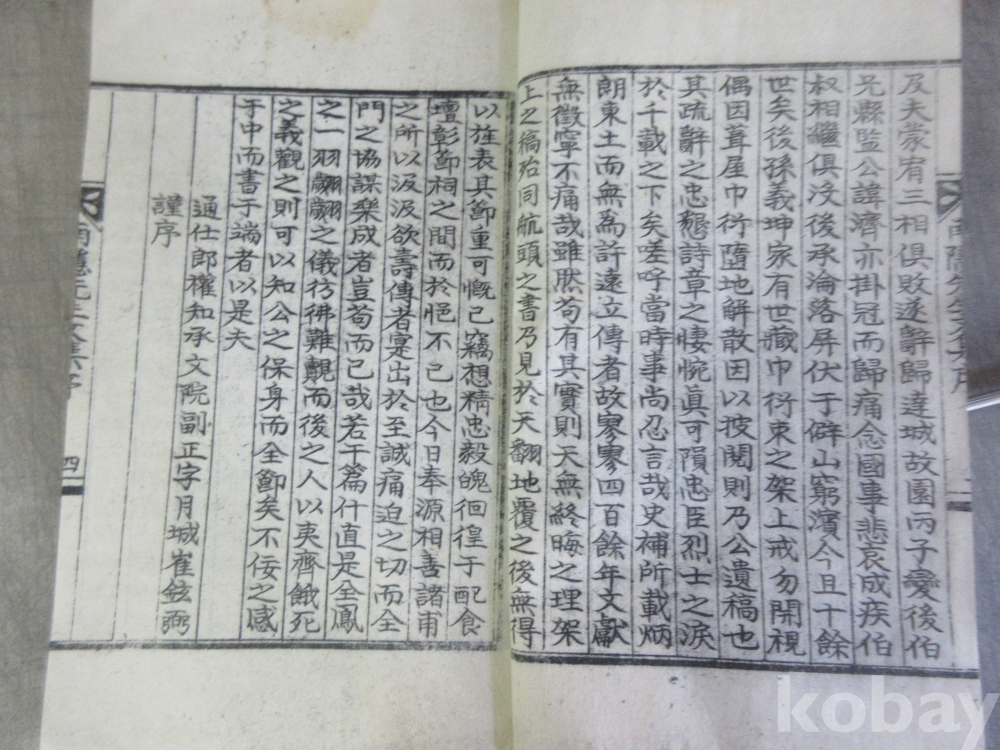 及夫蒙宥三相俱敗遂辭歸達城故園丙子變後伯
兄縣監公諱濟亦掛冠而歸痛念國事悲哀成疾伯
叔相繼俱沒後承淪落屏伏于僻山窮濱今且十餘
世矣後孫義坤家有世藏巾衍束之架上戒勿開視
偶因葺屋巾衍墮地解散因以披閱則乃公遺稿也
其疏辭之忠懇詩章之悽惋眞可隕忠臣烈士之淚
於千載之下矣嗟呼當時事尚忍言哉史補所載炳
朗東土而無爲許遠立傳者故寥寥四百餘年文獻
無徵寧不痛哉雖然苟有其實則天無終晦之理架
上之稿殆同航頭之書乃見於天翻地覆之後無得
以旌表其節重可慨已竊想精忠毅魄徊徨于配食
壇彰節祠之間而於悒不已也今日奉源相善諸甫
之所以汲汲欲壽傳者寔出於至誠痛迫之切而全
門之協謀樂成者豈苟而已哉若干篇什直是全鳳
之一羽翽翽之儀彷彿難覩而後之人以夷齊餓死
之義觀之則可以知公之保身而全節矣不佞之感
于中而書于端者以是夫
通仕郎權知承文院副正字月城崔鉉弼
謹序
四
kobay